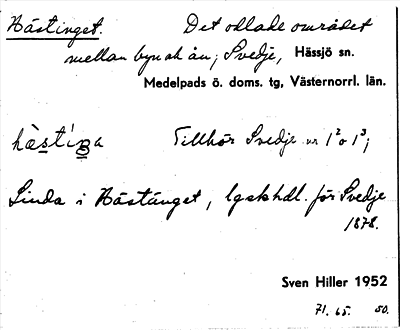 Hästinget. Det odlade området
mellan byn ok ån; Svedje, Hässjö sn.
Medelpads ö. doms. tg, Västernorrl. län.
Tillhör Svedje nr 1² o 1³;
Linda i Hästänget, lgskhdl. för Svedje
1878.
Sven Hiller 1952
71. 65. 50.